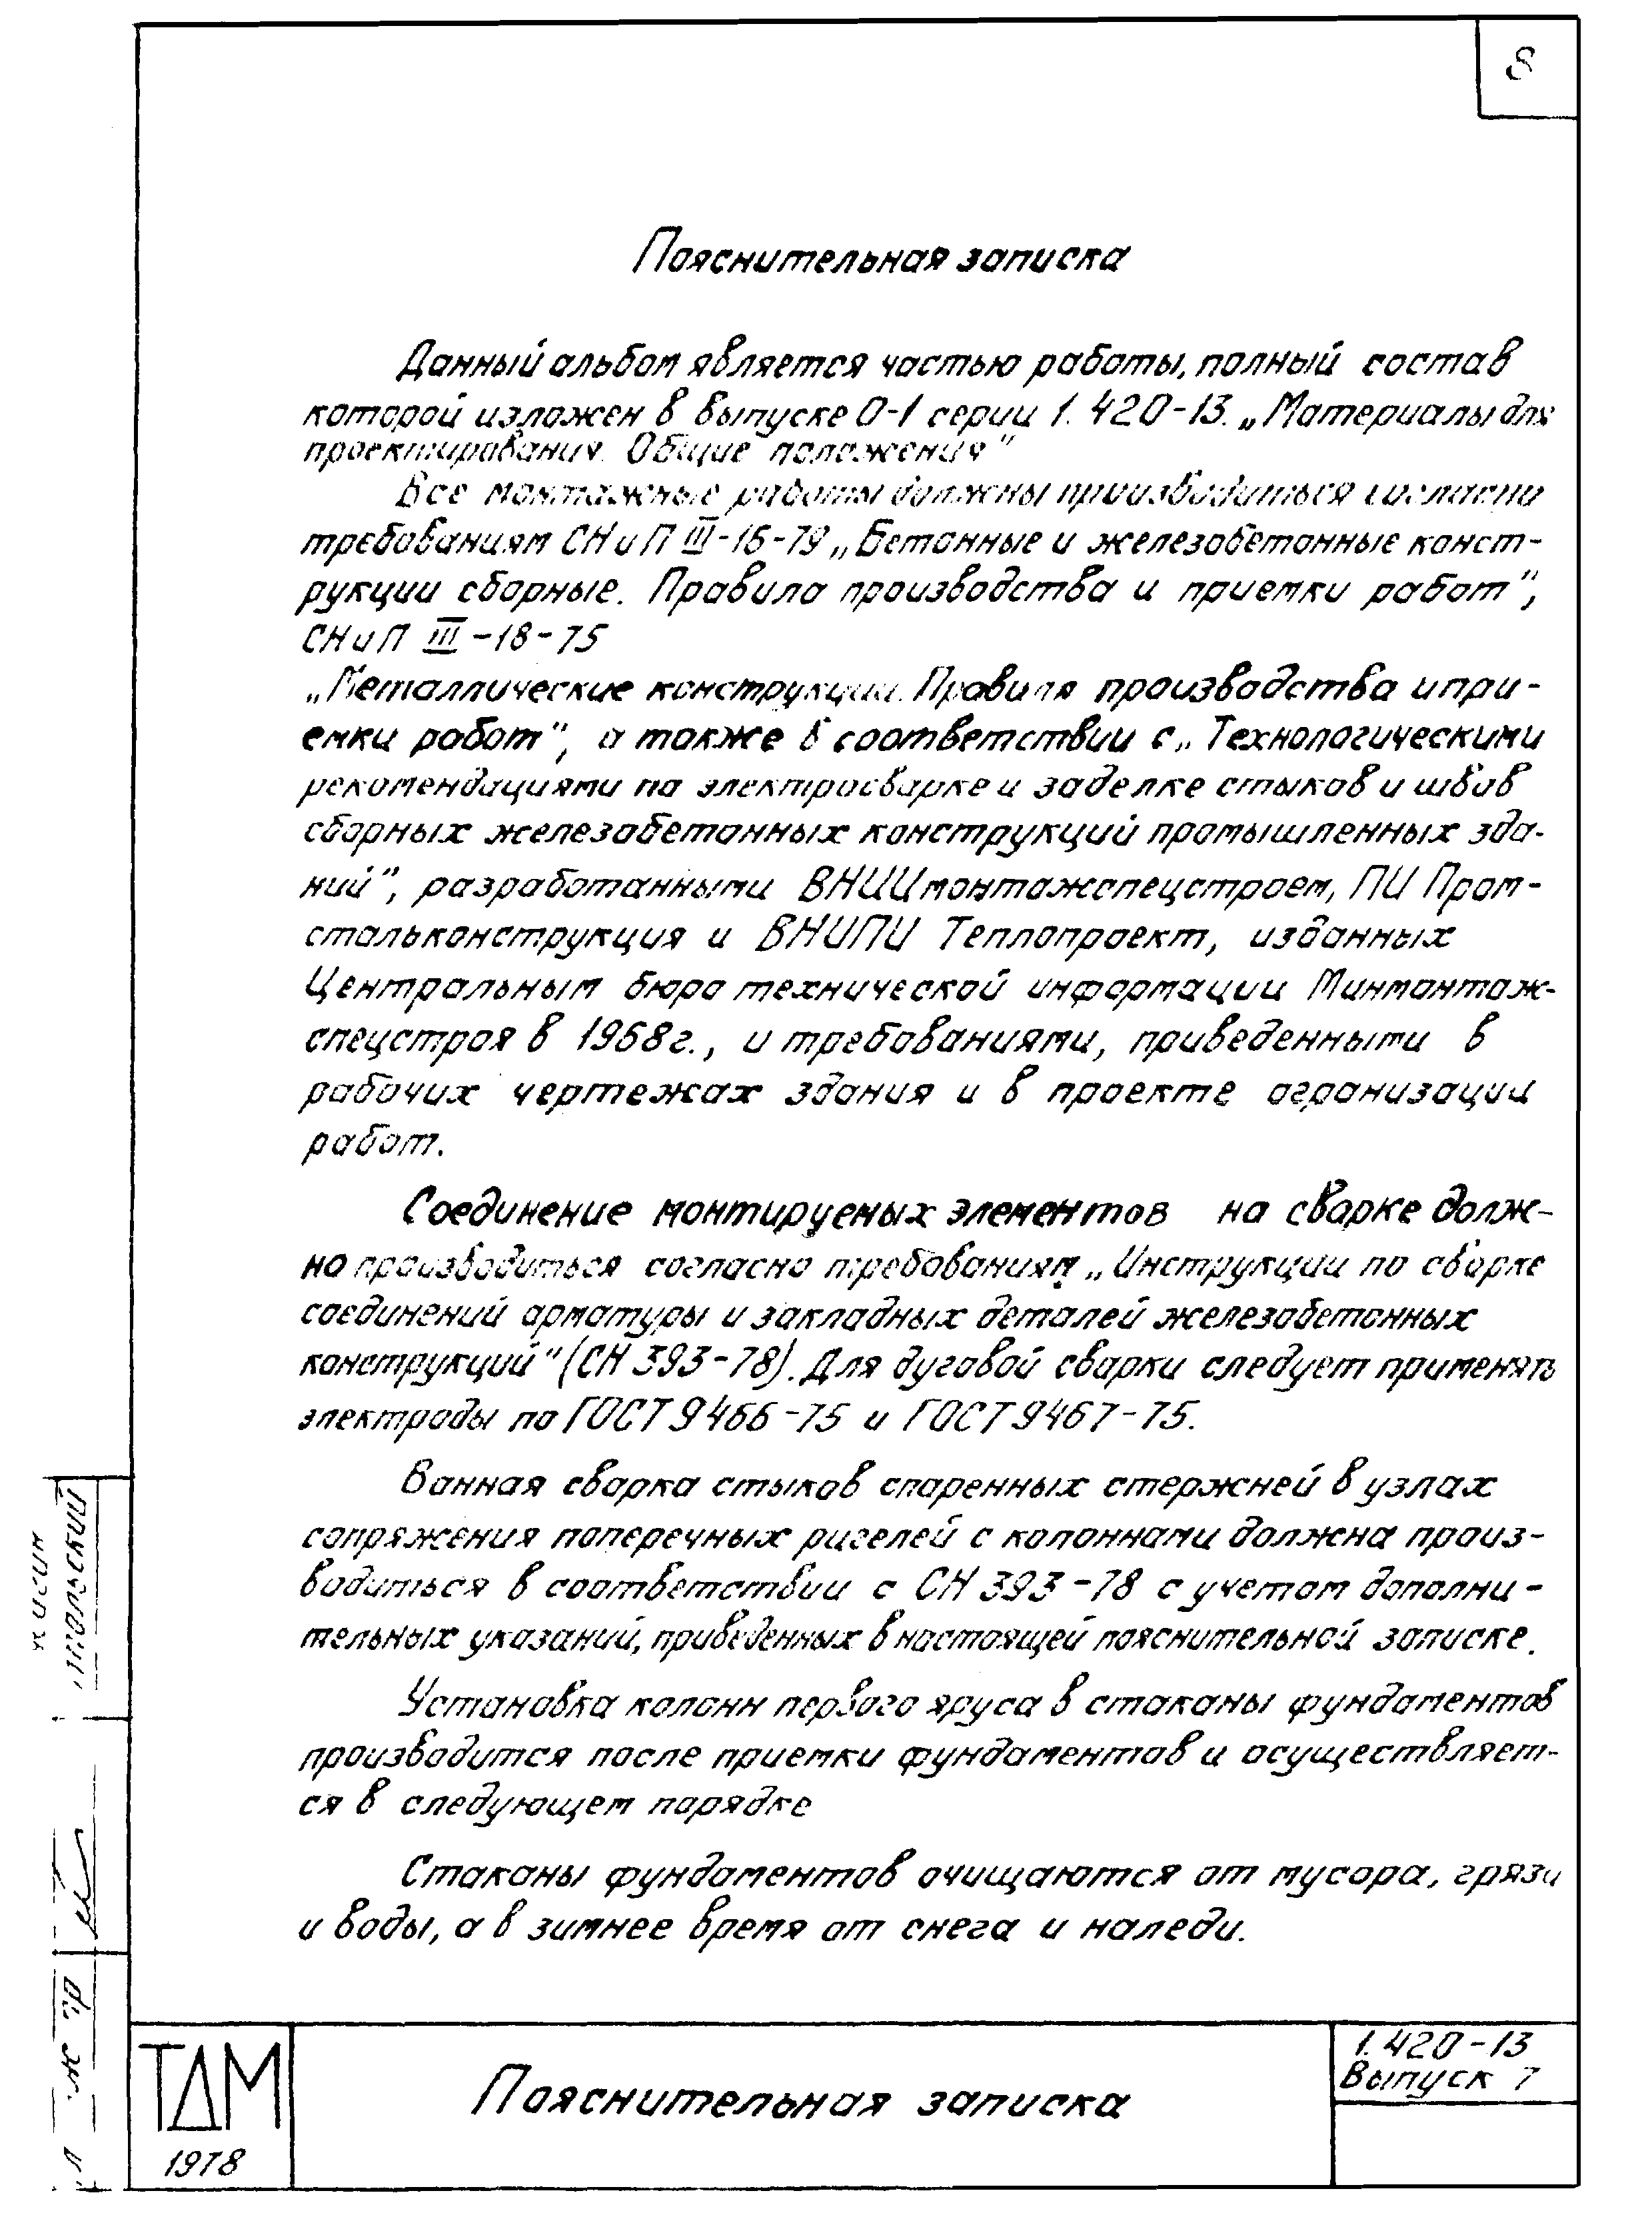 8
Пояснительная записка
Данный альбом является частью работы, полный состав
которой изложен в выпуске 0-1 серии 1.420-13. „Материалы для
проектирования. Общие положения"
Все монтажные работы должны производиться согласно
требованиям СНиП III-16-79 „Бетонные и железобетонные конст-
рукции сборные. Правила производства и приемки работ",
СНиП III-18-75
„Металлические конструкции. Правила производства и при-
емки работ", а также в соответствии с „Технологическими
рекомендациями по электросварке и заделке стыков и швов
сборных железобетонных конструкций промышленных зда-
ний", разработанными ВНИИмонтажспецстроем, ПИ Пром-
стальконструкция и ВНИПИ Теплопроект, изданных
Центральным бюро технической информации Минмонтаж-
спецстроя в 1968г., и требованиями, приведенными в
рабочих чертежах здания и в проекте огранизации
работ.
Соединение монтируемых элементов на сварке долж-
но производиться согласно требованиям „Инструкции по сварке
соединений арматуры и закладных деталей железобетонных
конструкций" (СН 393-78). Для дуговой сварки следует применять
электроды по ГОСТ 9466-75 и ГОСТ 9467-75.
Ванная сварка стыков спаренных стержней в узлах
сопряжения поперечных ригелей с колоннами должна произ-
водиться в соответствии с СН 393-78 с учетом дополни-
тельных указаний, приведенных в настоящей пояснительной записке.
Установка колонн первого яруса в стаканы фундаментов
производится после приемки фундаментов и осуществляет-
ся в следующем порядке
Стаканы фундаментов очищаются от мусора, грязи
и воды, а в зимнее время от снега и наледи.
ТДМ
1978
Пояснительная записка
1.420-13
Выпуск 7